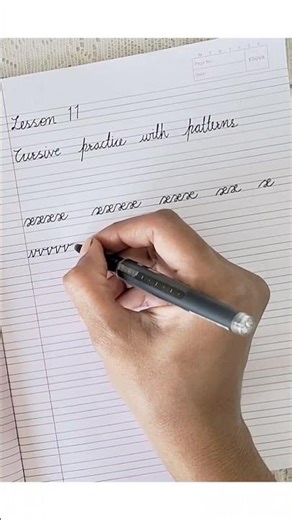 Lesson 11
Cursive practice with patterns.
xxxx xxxx xxx xx x
vvvvv